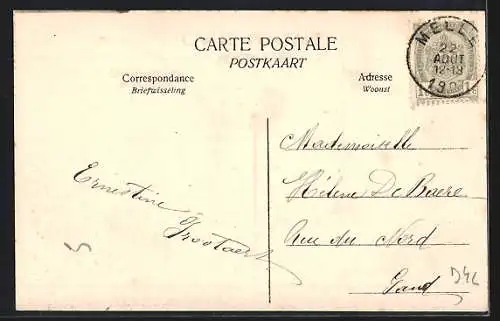 CARTE POSTALE
POSTKAART
Correspondance
Briefwisseling
Adresse
Woonst
MELLE
22
AOUT
12-19
1907
Ernestine
Grootaert
Mademoiselle
Hélène De Baere
Rue du Nord
Gand
D46